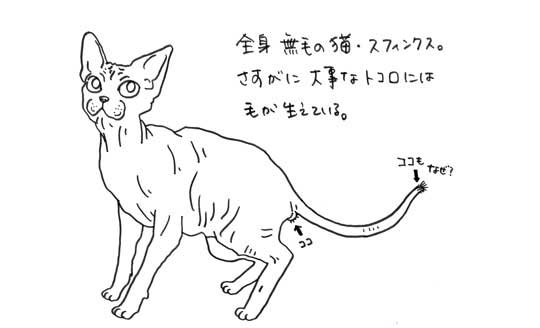 全身 無毛の猫・スフィンクス。
さすがに 大事なトコロには
毛が生えている。
ココも なぜ?
ココ